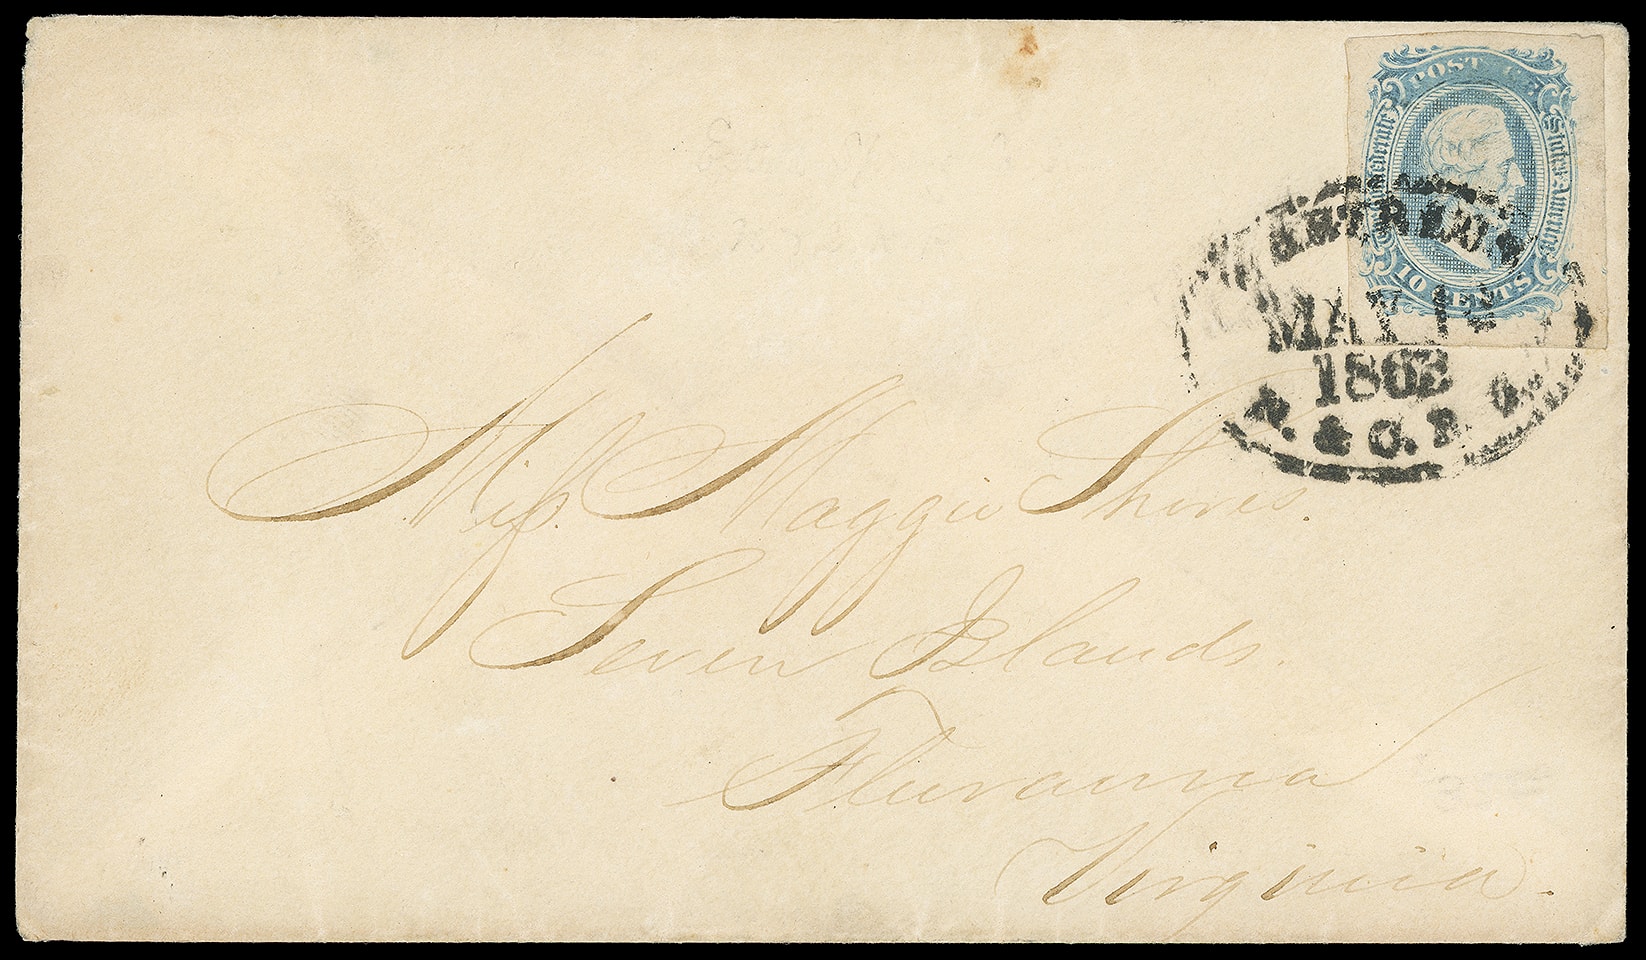 POST
Confederate States of America
10 CENTS
MAY 1
1862
N. & C. R.
Miss. Maggie Shores.
Seven Islands.
Fluvanna
Virginia.